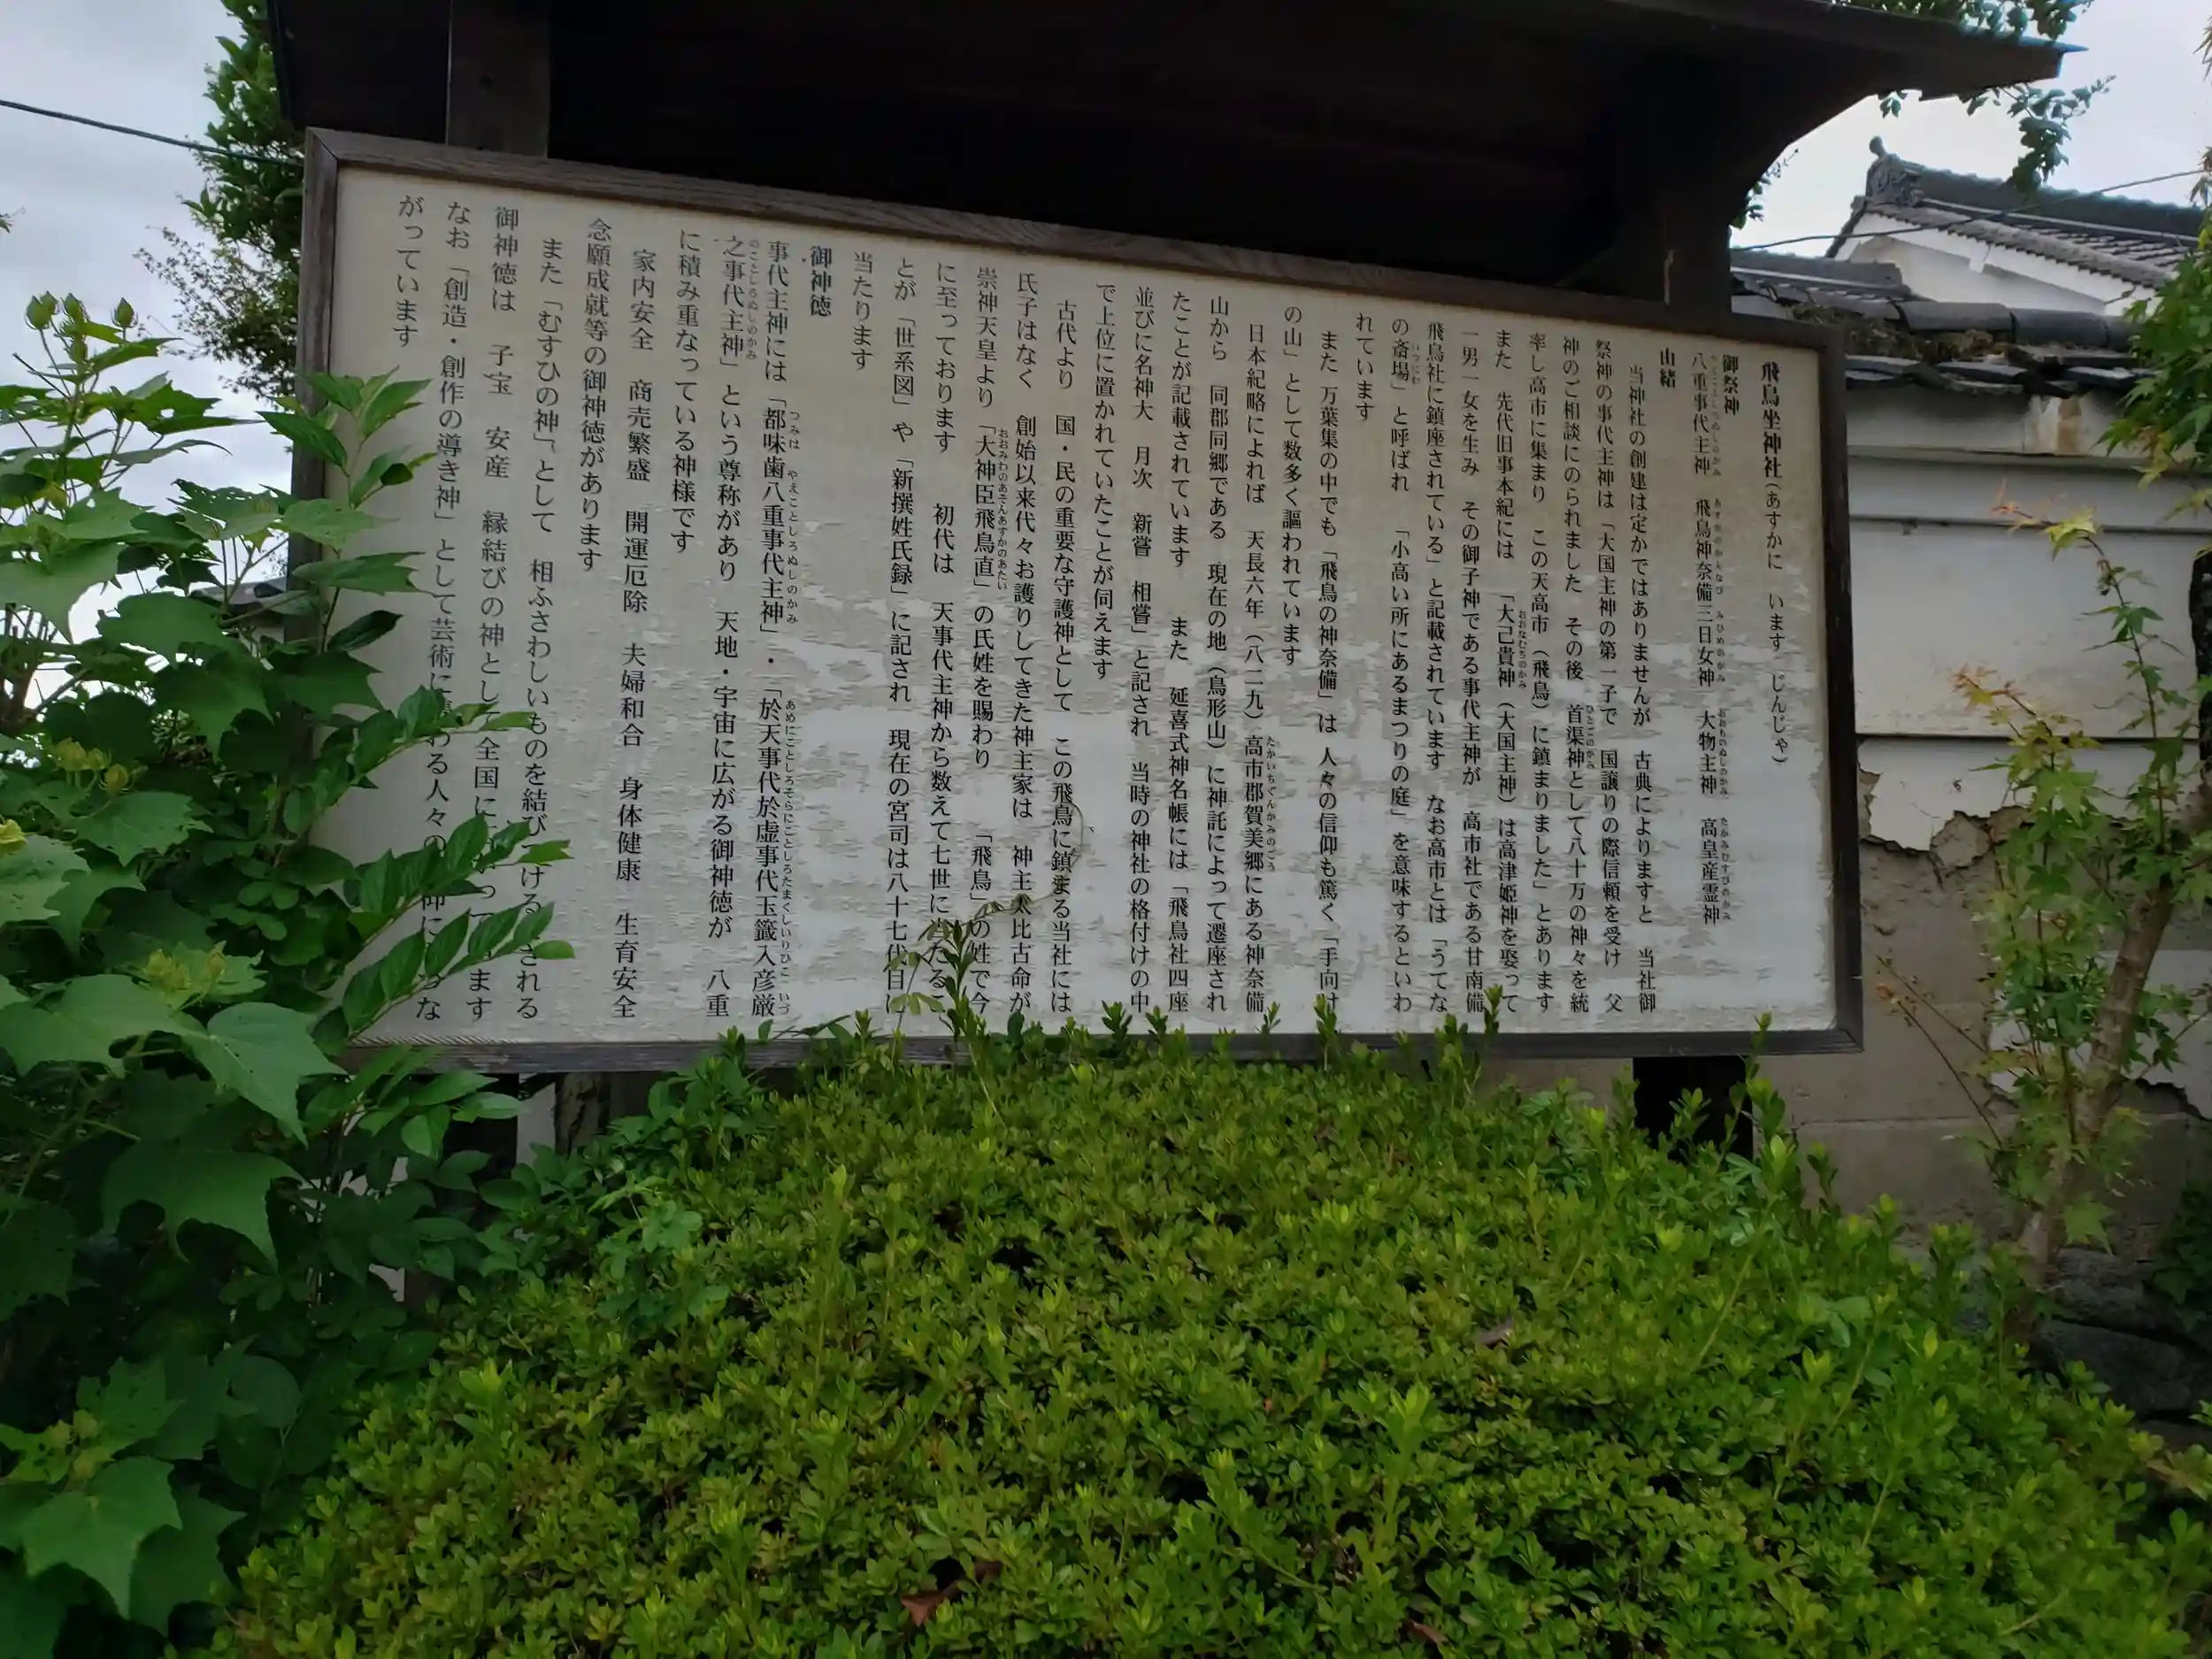 飛鳥坐神社(あすかに います じんじゃ)
御祭神
八重事代主神 飛鳥神奈備三日女神 大物主神 高皇産霊神
由緒
当神社の創建は定かではありませんが 古典によりますと 当社御
祭神の事代主神は「大国主神の第一子で 国譲りの際信頼を受け 父
神のご相談にのられました その後 首渠神として八十万の神々を統
率し高市に集まり この天高市(飛鳥)に鎮まりました」とあります
また 先代旧事本紀には 「大己貴神(大国主神)は高津姫神を娶って
一男一女を生み その御子神である事代主神が 高市社である甘南備
飛鳥社に鎮座されている」と記載されています なお高市とは「うてな
の斎場」と呼ばれ 「小高い所にあるまつりの庭」を意味するといわ
れています
また 万葉集の中でも「飛鳥の神奈備」は 人々の信仰も篤く「手向け
の山」として数多く謳われています
日本紀略によれば 天長六年(八二九)高市郡賀美郷にある神奈備
山から 同郡同郷である 現在の地(鳥形山)に神託によって遷座され
たことが記載されています また 延喜式神名帳には「飛鳥社四座
並びに名神大 月次 新嘗 相嘗」と記され 当時の神社の格付けの中
で上位に置かれていたことが伺えます
古代より 国・民の重要な守護神として この飛鳥に鎮まる当社には
氏子はなく 創始以来代々お護りしてきた神主家は 神主太比古命が
崇神天皇より「大神臣飛鳥直」の氏姓を賜わり 「飛鳥」の姓で今
に至っております 初代は 天事代主神から数えて七世に当たるこ
とが「世系図」や「新撰姓氏録」に記され 現在の宮司は八十七代目に
当たります
御神徳
事代主神には「都味歯八重事代主神」・「於天事代於虚事代玉籤入彦厳
之事代主神」という尊称があり 天地・宇宙に広がる御神徳が 八重
に積み重なっている神様です
家内安全 商売繁盛 開運厄除 夫婦和合 身体健康 生育安全
念願成就等の御神徳があります
また「むすひの神」として 相ふさわしいものを結びつける される
御神徳は 子宝 安産 縁結びの神として全国に ます
なお「創造・創作の導き神」として芸術に わる人々の な
がっています